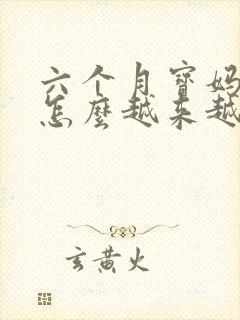 六个月寶妈
怎麼越来越
玄黄火